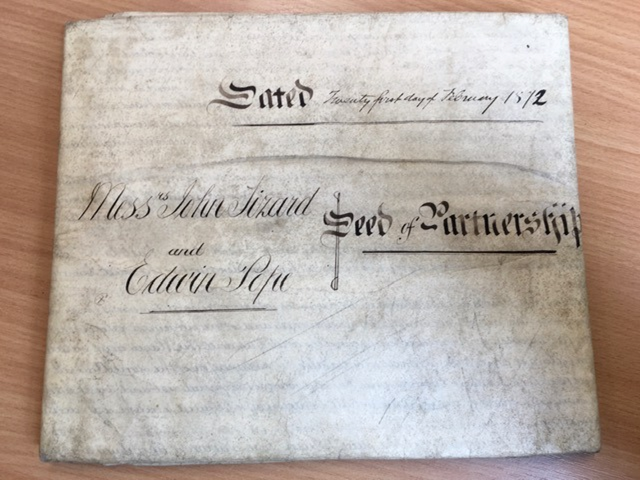 Dated Twenty first day of February 1872
Messrs John Tizard
and
Edwin Pope
Deed of Partnership